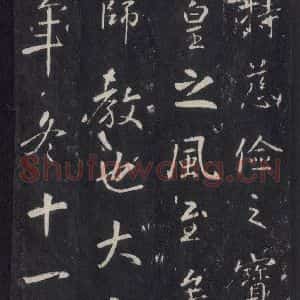 慈儉之寶
皇之風至
師教也大
年冬十一
Shufawang.CN